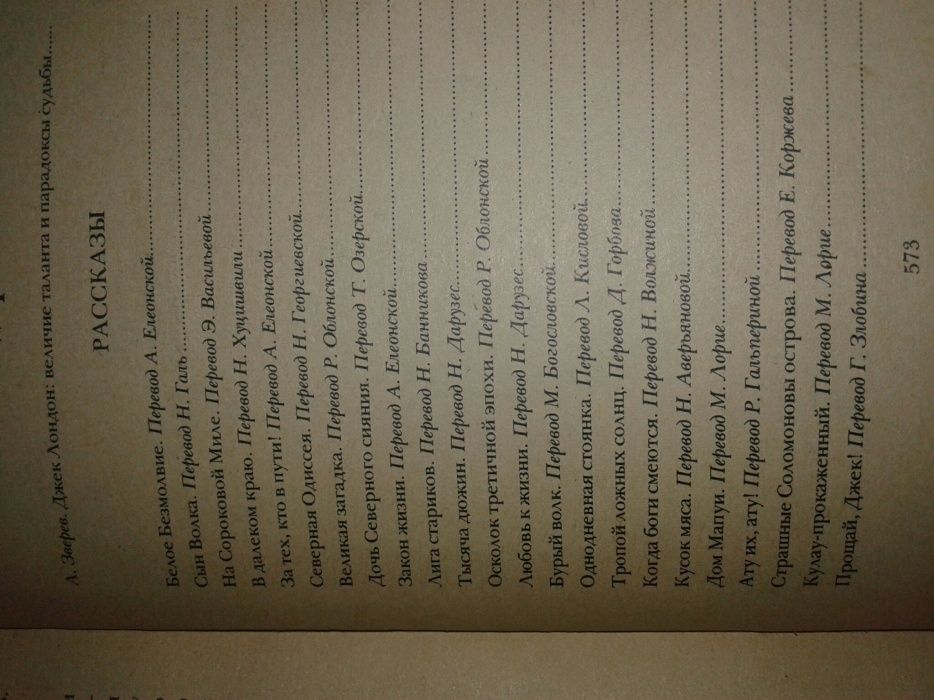 А. Зверев. Джек Лондон: величие таланта и парадоксы судьбы
РАССКАЗЫ
Белое Безмолвие. Перевод А. Елеонской
Сын Волка. Перевод Н. Галь
На Сороковой Миле. Перевод Э. Васильевой
В далеком краю. Перевод Н. Хуцишвили
За тех, кто в пути! Перевод А. Елеонской
Северная Одиссея. Перевод Н. Георгиевской
Великая загадка. Перевод Р. Облонской
Дочь Северного сияния. Перевод Т. Озерской
Закон жизни. Перевод А. Елеонской
Лига стариков. Перевод Н. Банникова
Тысяча дюжин. Перевод Н. Дарузес
Осколок третичной эпохи. Перевод Р. Облонской
Любовь к жизни. Перевод Н. Дарузес
Бурый волк. Перевод М. Богословской
Однодневная стоянка. Перевод Л. Кисловой
Тропой ложных солнц. Перевод Д. Горбова
Когда боги смеются. Перевод Н. Волжиной
Кусок мяса. Перевод Н. Аверьяновой
Дом Мапуи. Перевод М. Лорие
Ату их, ату! Перевод Р. Гальпериной
Страшные Соломоновы острова. Перевод Е. Коржева
Кулау-прокаженный. Перевод М. Лорие
Прощай, Джек! Перевод Г. Злобина
573